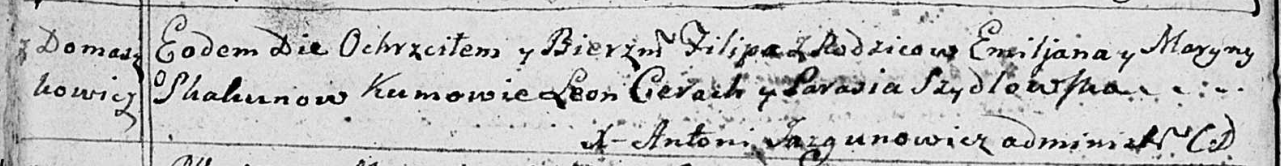 z Domasz
kowicz
Eodem Die Ochrzciłem y Bierzm Filipa z Rodzicow Emiljana y Maryny
Skakunow Kumowie Leon Cierach y Parasia Szydlowska
X Antoni Jazgunowicz